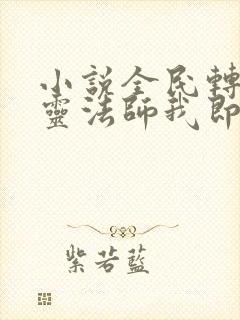 小説全民轉
靈法師我即
紫若藍